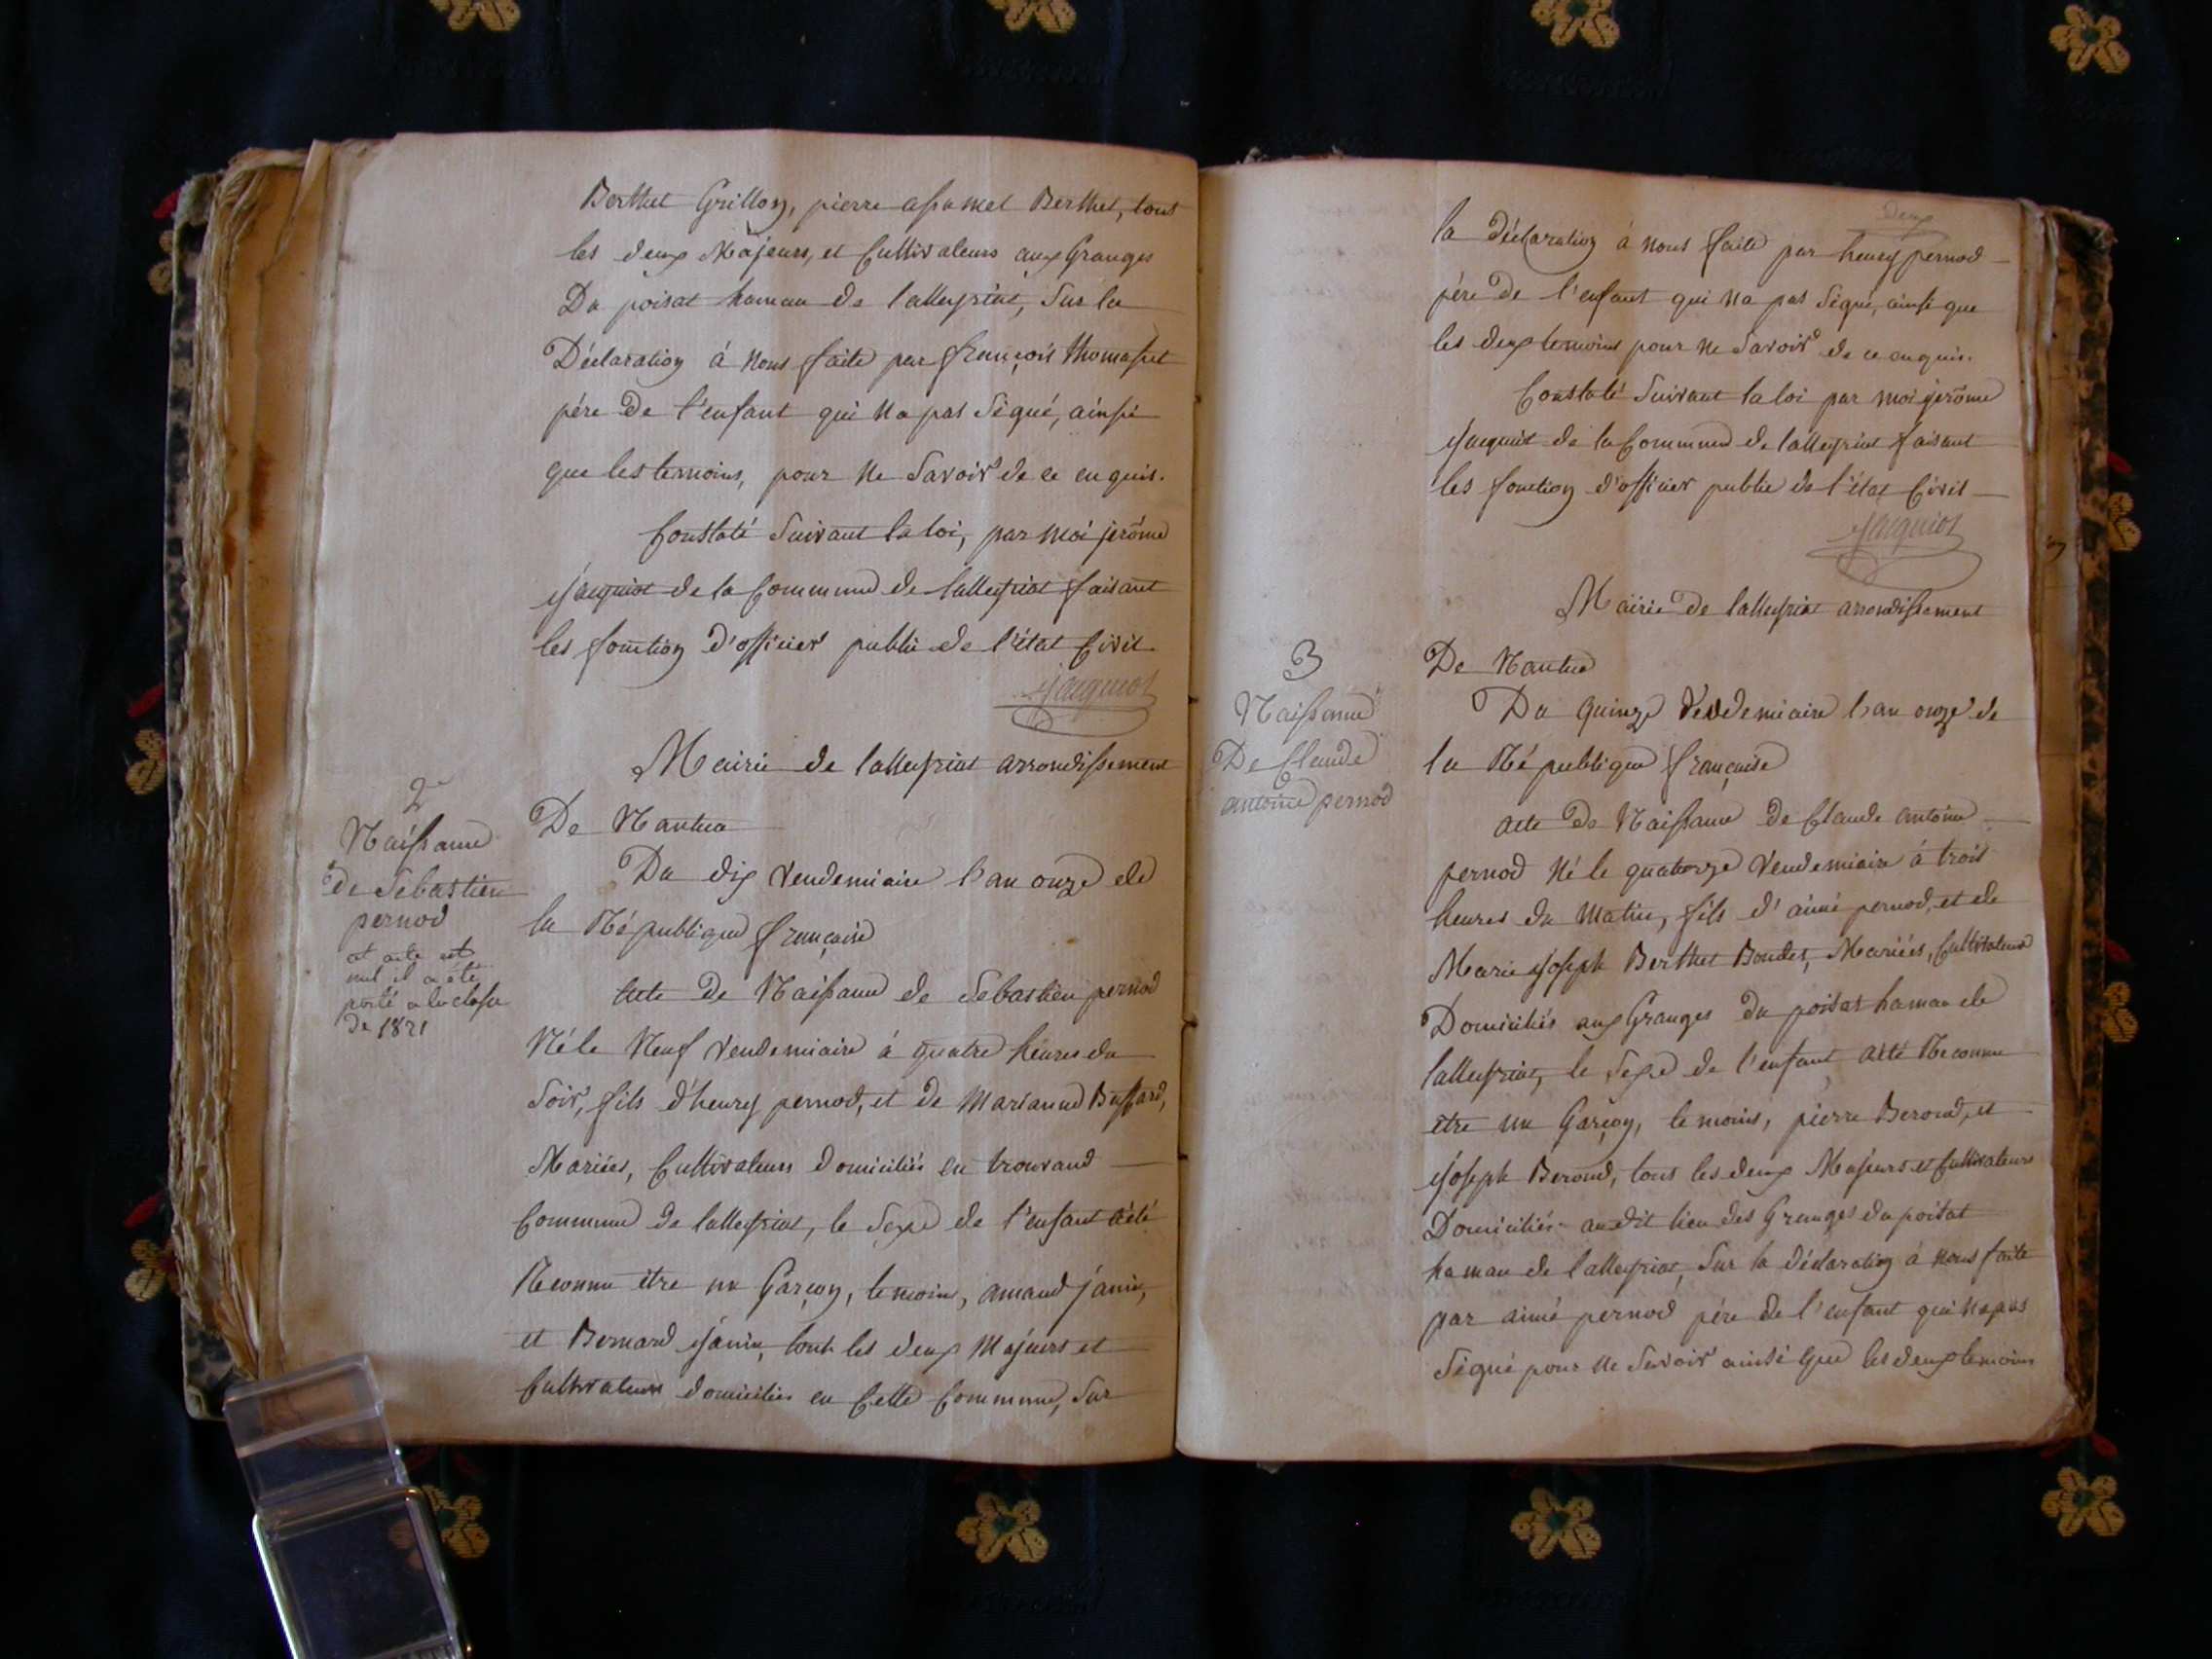 Berthet Grillon, pierre assumel Berthet, tous
les deux Majeurs, et Cultivateurs aux Granges
Du poisat hamau de lalleyriat, Sur la
Déclaration à Nous faite par françois thomasset
pére De l'enfant qui Na pas Signé, ainsi
que les temoins, pour Ne Savoir de ce enquis.
Constaté Suivant la loi, par moi jerôme
Jacquiot de la Commune de lalleyriat faisant
les fonction d'officier public de l'état Civil
Jacquiot
Mairie de lalleyriat arrondissement
De Nantua
2
Naissance
de Sebastien
pernod
cet acte est
nul il a été
porté a la classe
de 1821
Du dix Vendemiaire l'an onze de
la République française
Acte de Naissance de Sebastien pernod
Né le Neuf Vendemiaire à quatre heures du
Soir, fils d'henry pernod, et de Marianne Buffard,
Mariées, Cultivateurs domiciliés en trouvand
Commune de lalleyriat, le Sexe de l'enfant a été
Reconnu être un Garçon, temoins, amand janin,
et Bernard Janin, tout les deux Majeurs et
Cultivateurs domiciliés en Cette Commune, Sur
deux
la Déclaration à nous faite par henry pernod
pére De l'enfant qui Na pas Signé, ainsi que
les deux temoins pour Ne Savoir de ce enquis.
Constaté Suivant la loi par moi jerôme
Jacquiot de la Commune de lalleyriat faisant
les fonction d'officier public de l'état Civil
Jacquiot
Mairie De lalleyriat arrondissement
De Nantua
3
Naissance
De Claude
antoine pernod
Du Quinze Vendemiaire l'an onze de
la République française
acte De Naissance De Claude antoine
pernod Né le quatorze Vendemiaire à trois
heures du Matin, fils d'aimé pernod, et de
Marie Joseph Berthet Bondet, Mariées, Cultivateurs
Domiciliés aux Granges du poisat hamau de
lalleyriat, le Sexe de l'enfant a été Reconnu
être un Garçon, temoins, pierre Beroud, et
Joseph Beroud, tous les deux Majeurs et Cultivateurs
Domiciliés audit lieu des Granges du poisat
hamau de lalleyriat, Sur la déclaration à Nous faite
par aimé pernod pére de l'enfant qui Na pas
Signé pour Ne Savoir ainsi que les deux temoins